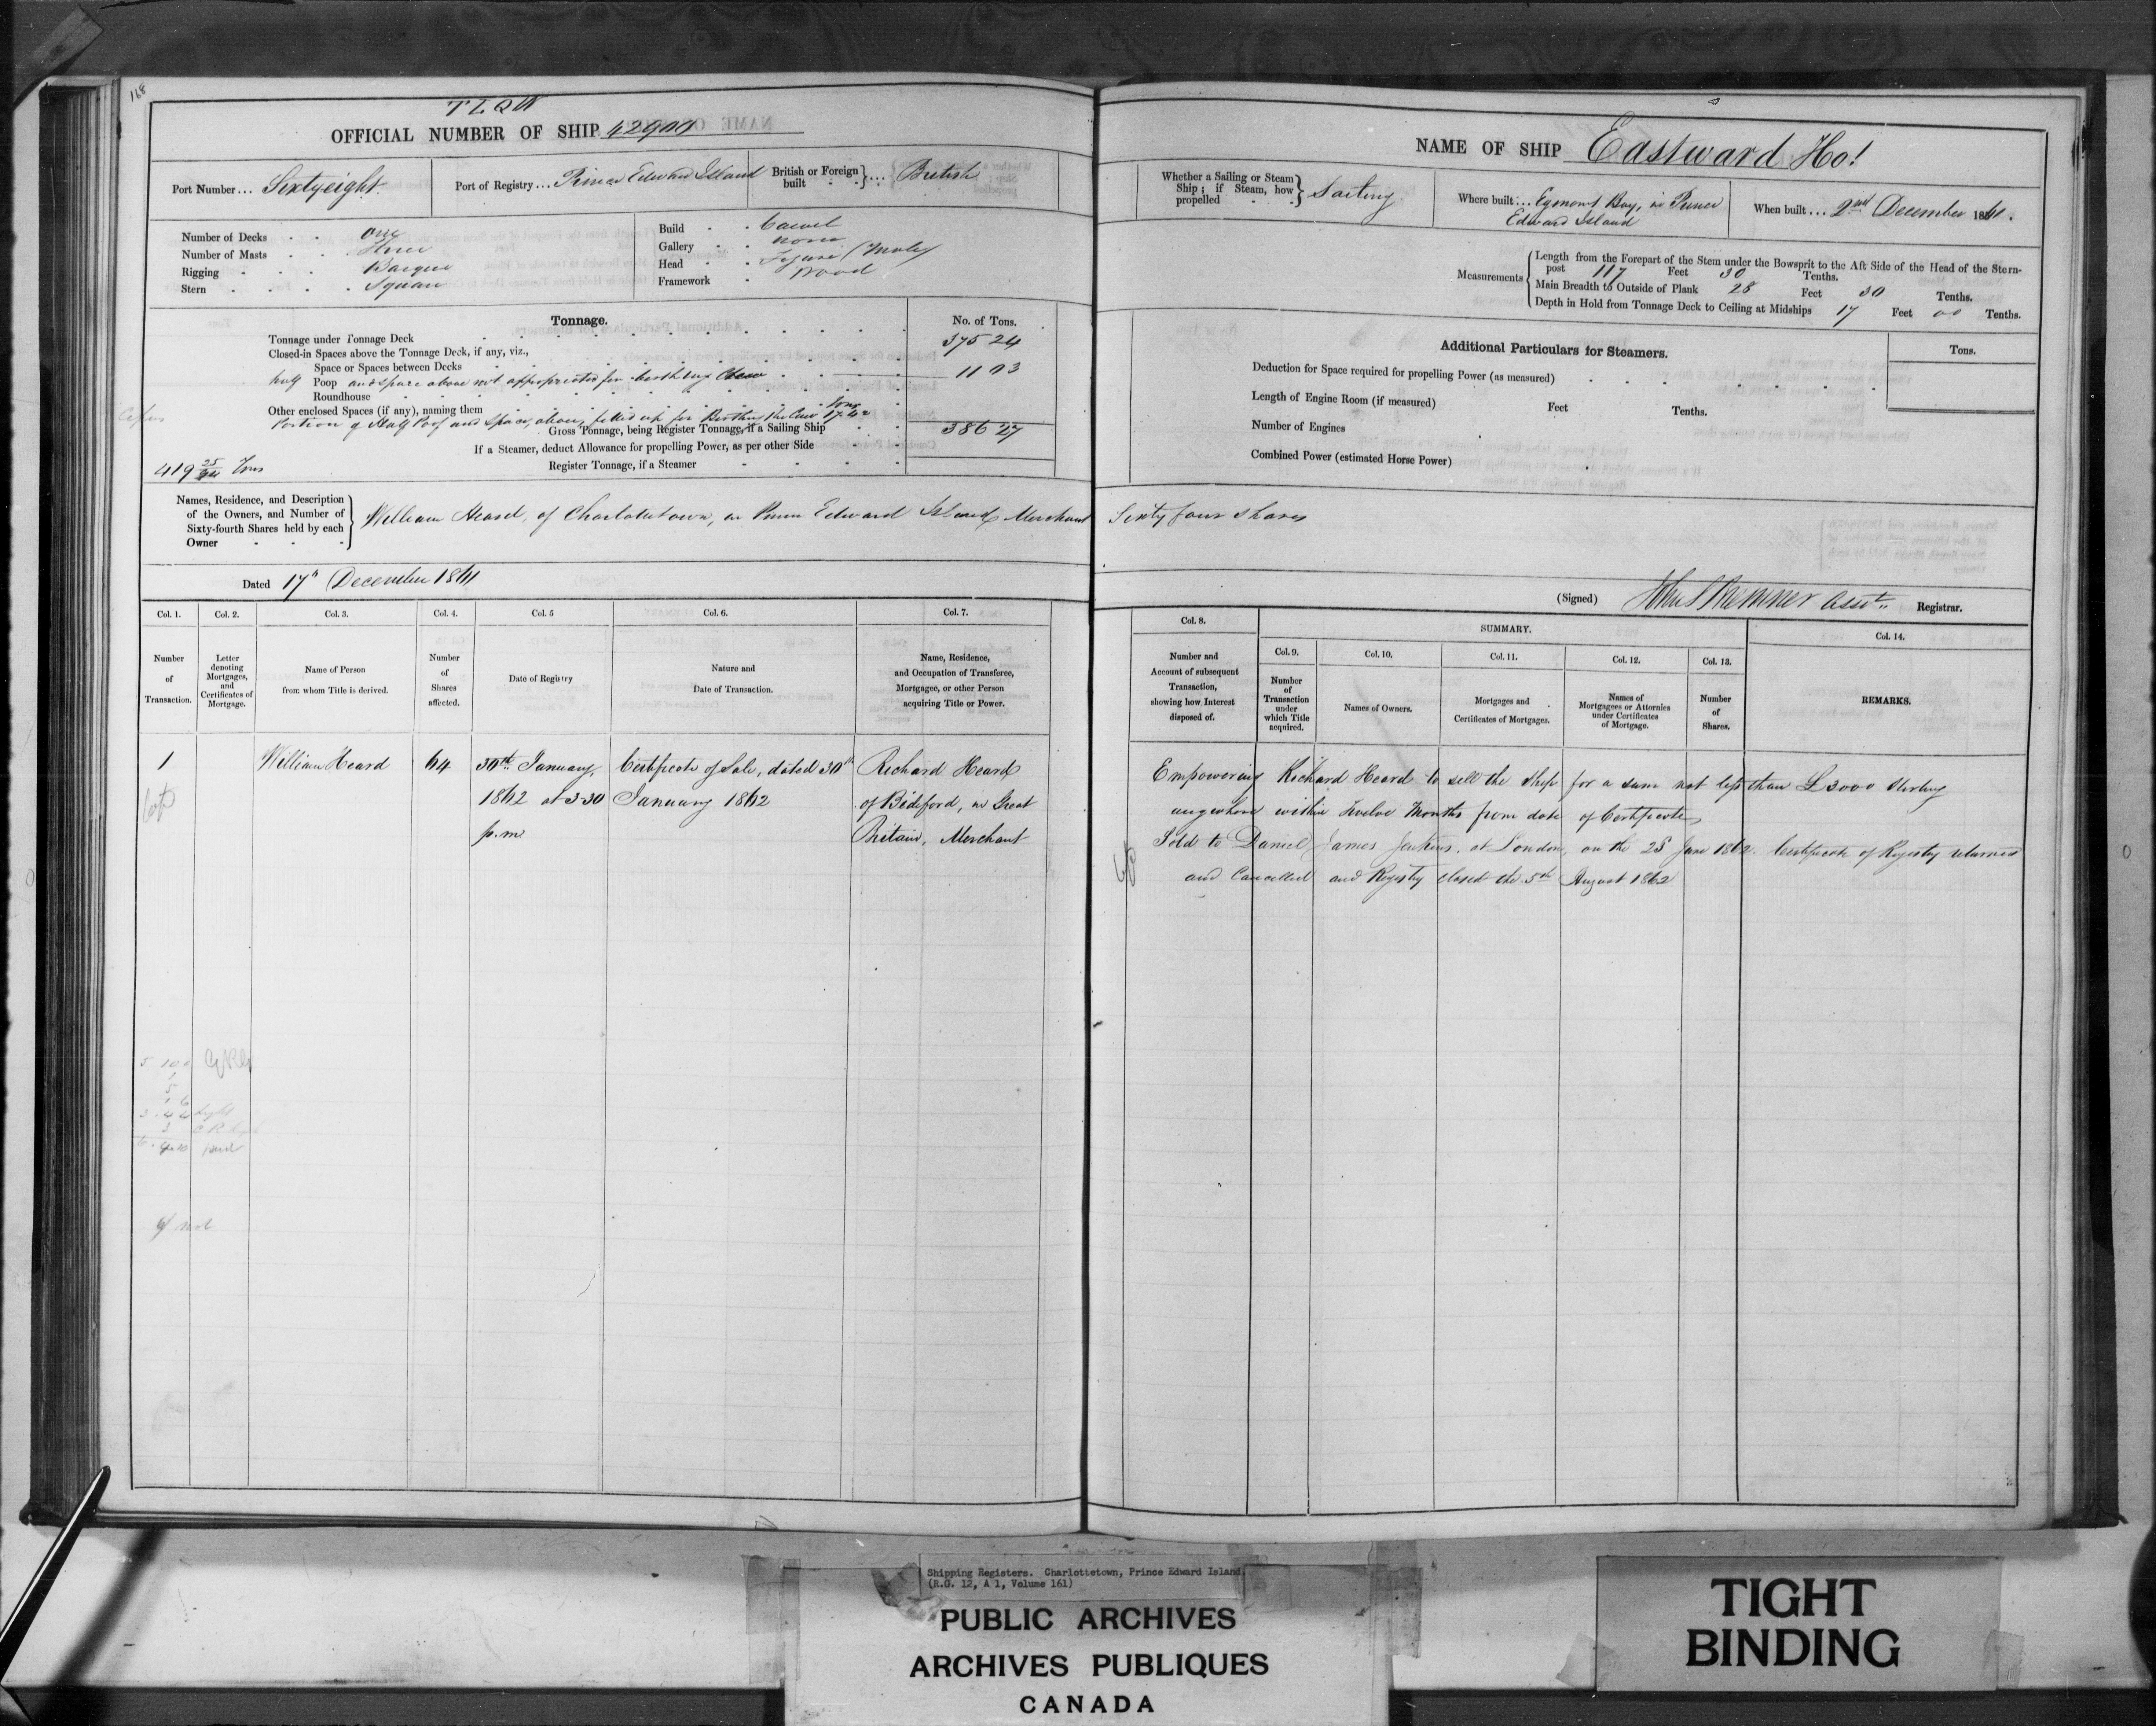 168
TLQW
OFFICIAL NUMBER OF SHIP 42900
Port Number... Sixty eight
Port of Registry... Prince Edward Island
British or Foreign built } ... British
Number of Decks One
Number of Masts Three
Rigging Barque
Stern Square
Build Carvel
Gallery none
Head Figure (Male)
Framework Wood
Tonnage.
No. of Tons.
Tonnage under Tonnage Deck 375 24
Closed-in Spaces above the Tonnage Deck, if any, viz.,
Space or Spaces between Decks
half Poop and space above not appropriated for berthing Crew 11 03
Roundhouse
Other enclosed Spaces (if any), naming them
Portion of Half Poop and space above, fitted up for Berthing the Crew Tons
Gross Tonnage, being Register Tonnage, if a Sailing Ship 386 27
If a Steamer, deduct Allowance for propelling Power, as per other Side
Register Tonnage, if a Steamer
419 Tons
Names, Residence, and Description of the Owners, and Number of Sixty-fourth Shares held by each Owner
William Heard, of Charlottetown, in Prince Edward Island, Merchant
Dated 17th December 1861
Col. 1. Col. 2. Col. 3. Col. 4. Col. 5 Col. 6. Col. 7.
Number of Transaction.
Letter denoting Mortgages, and Certificates of Mortgage.
Name of Person from whom Title is derived.
Number of Shares affected.
Date of Registry
Nature and Date of Transaction.
Name, Residence, and Occupation of Transferee, Mortgagee, or other Person acquiring Title or Power.
1 William Heard 64
30th January, 1862 at 3-30 p.m
Certificate of Sale, dated 30th January 1862
Richard Heard of Bideford, in Great Britain, Merchant
NAME OF SHIP Eastward Ho!
Whether a Sailing or Steam Ship; if Steam, how propelled } Sailing
Where built... Egmont Bay, in Prince Edward Island
When built... 2nd December 1861.
Measurements
Length from the Forepart of the Stem under the Bowsprit to the Aft Side of the Head of the Stern-
post 117 Feet 30 Tenths.
Main Breadth to Outside of Plank 28 Feet 30 Tenths.
Depth in Hold from Tonnage Deck to Ceiling at Midships 17 Feet 00 Tenths.
Additional Particulars for Steamers.
Tons.
Deduction for Space required for propelling Power (as measured)
Length of Engine Room (if measured) Feet Tenths.
Number of Engines
Combined Power (estimated Horse Power)
Sixty four shares
(Signed) Asst. Registrar.
Col. 8.
Number and Account of subsequent Transaction, showing how Interest disposed of.
SUMMARY.
Col. 9. Col. 10. Col. 11. Col. 12. Col. 13. Col. 14.
Number of Transaction under which Title acquired.
Names of Owners.
Mortgages and Certificates of Mortgages.
Names of Mortgagees or Attornies under Certificates of Mortgage.
Number of Shares.
REMARKS.
Empowering Richard Heard to sell the Ship for a sum not less than £3000 Sterling
anywhere within twelve Months from date of Certificate
Sold to Daniel James Jenkins, at London, on the 28 June 1862. Certificate of Registry returned
and Cancelled and Registry closed the 5th August 1862
Shipping Registers. Charlottetown, Prince Edward Island,
(R.G. 12, A 1, Volume 161)
PUBLIC ARCHIVES
ARCHIVES PUBLIQUES
CANADA
TIGHT
BINDING